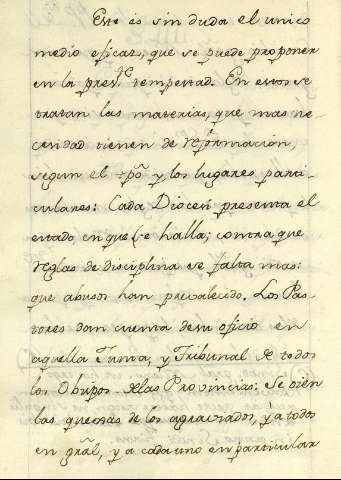 Este es sin duda el unico
medio eficaz, que se puede proponer
en la pres.te tempestad. En estos se
tratan las materias, que mas ne-
cesidad tienen de reformación,
segun el tpõ y los lugares parti-
culares: Cada Diocesi presenta el
estado en que se halla; contra que
reglas de disciplina se falta mas:
que abusos han prevalecido. Los Pas-
tores dan cuenta de su oficio en
aquella Junta, y Tribunal de todos
los Obispos de las Provincias: Se oien
las quexas de los agraviados, y à todos
en grãl, y a cada uno en particular